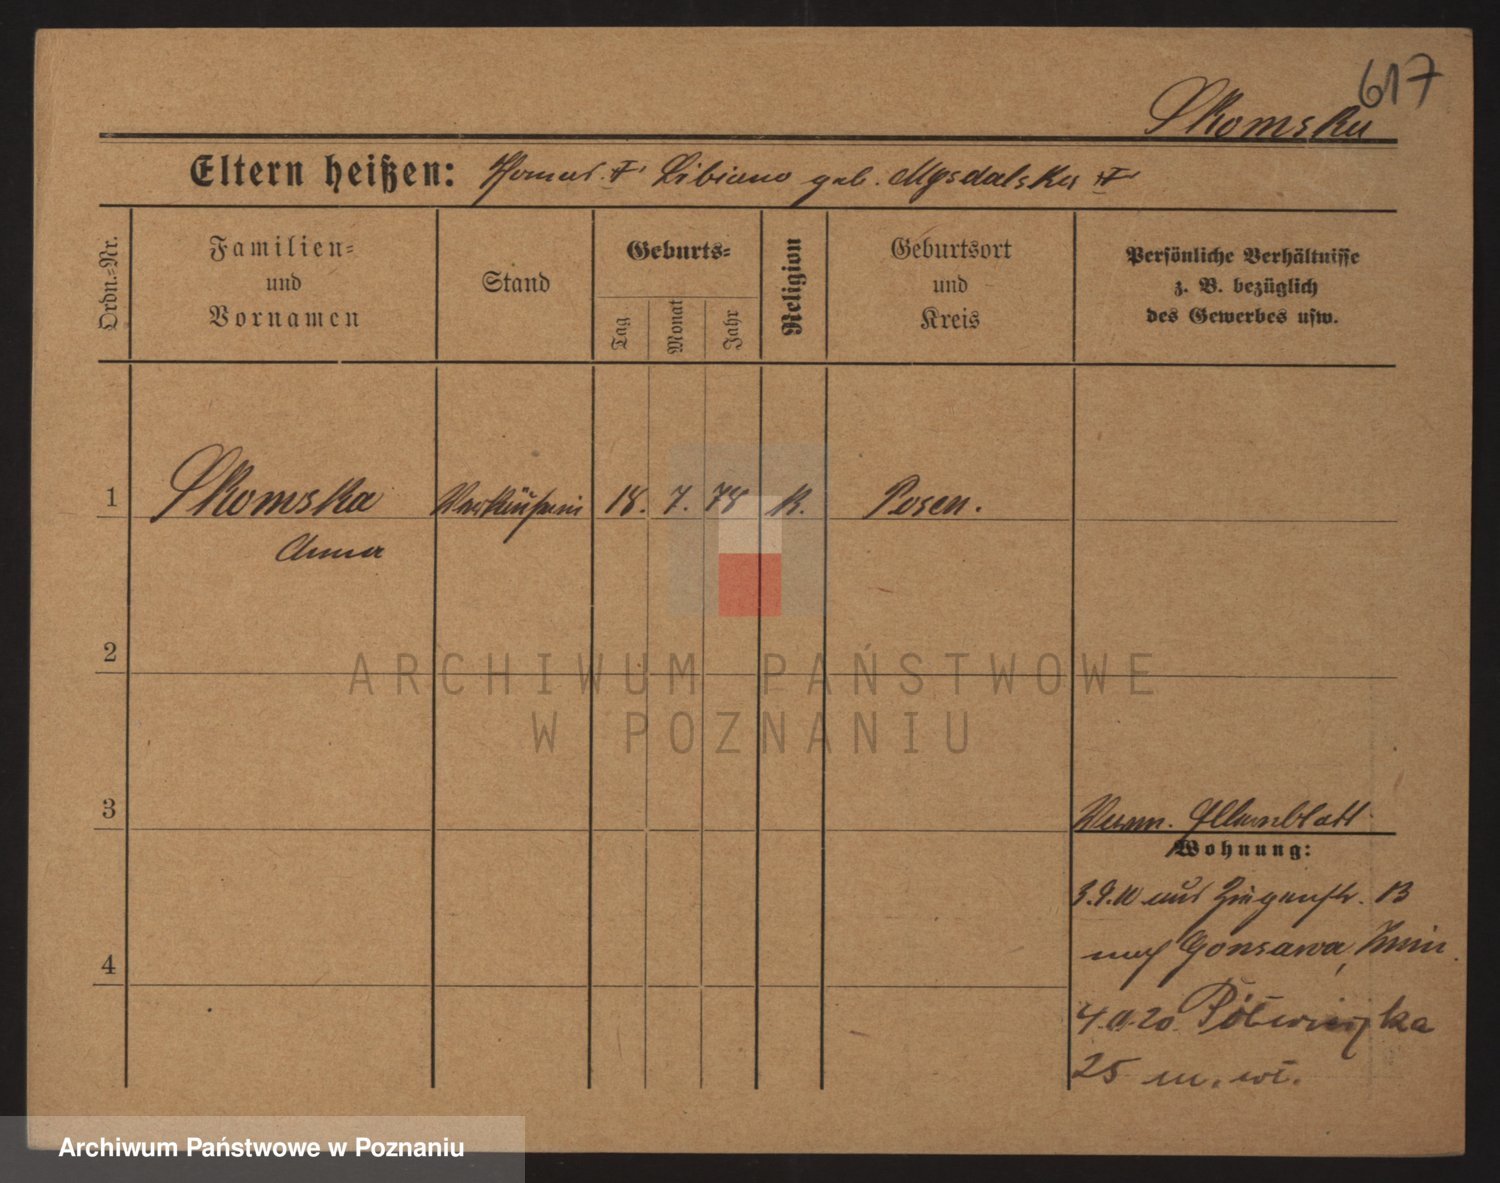 617
Skomska
Eltern heißen: Thomas † Libiana geb. Mysdalska †
Ordn.-Nr.
Familien- und Vornamen
Stand
Geburts-
Tag
Monat
Jahr
Religion
Geburtsort und Kreis
Persönliche Verhältnisse
z. B. bezüglich
des Gewerbes usw.
1 Skomska Verkäuferin 18. 7. 78 K. Posen.
Anna
2
3
4
Wohnung:
aus Ziegenstr. 13
nach Gonsawa, Znin.
4.9.20 Półwiejska
25 m. wł.
ARCHIWUM PAŃSTWOWE
W POZNANIU
Archiwum Państwowe w Poznaniu